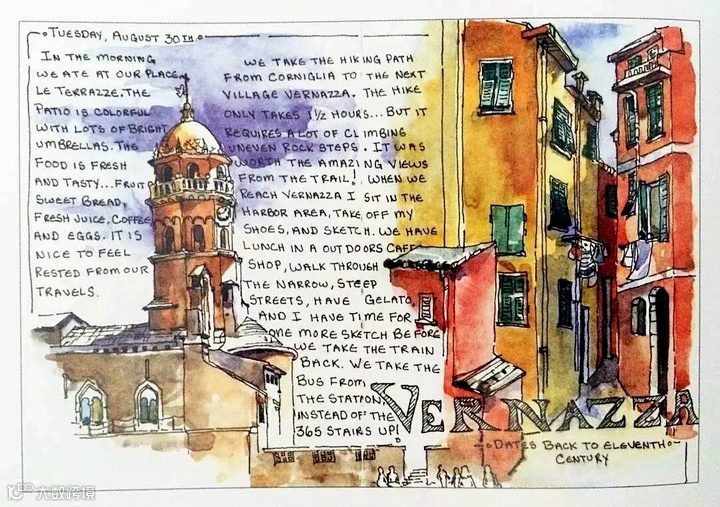 TUESDAY, AUGUST 30TH
IN THE MORNING
WE ATE AT OUR PLACE,
LE TERRAZZE. THE
PATIO IS COLORFUL
WITH LOTS OF BRIGHT
UMBRELLAS. THE
FOOD IS FRESH
AND TASTY... FRUIT
SWEET BREAD,
FRESH JUICE, COFFEE,
AND EGGS. IT IS
NICE TO FEEL
RESTED FROM OUR
TRAVELS.
WE TAKE THE HIKING PATH
FROM CORNIGLIA TO THE NEXT
VILLAGE VERNAZZA. THE HIKE
ONLY TAKES 1½ HOURS... BUT IT
REQUIRES A LOT OF CLIMBING
UNEVEN ROCK STEPS. IT WAS
WORTH THE AMAZING VIEWS
FROM THE TRAIL! WHEN WE
REACH VERNAZZA I SIT IN THE
HARBOR AREA, TAKE OFF MY
SHOES, AND SKETCH. WE HAVE
LUNCH IN A OUTDOORS CAFE
SHOP, WALK THROUGH
THE NARROW, STEEP
STREETS, HAVE GELATO,
AND I HAVE TIME FOR
ONE MORE SKETCH BEFORE
WE TAKE THE TRAIN
BACK. WE TAKE THE
BUS FROM
THE STATION,
INSTEAD OF THE
365 STAIRS UP!
VERNAZZA
DATES BACK TO ELEVENTH
CENTURY
大数跨境